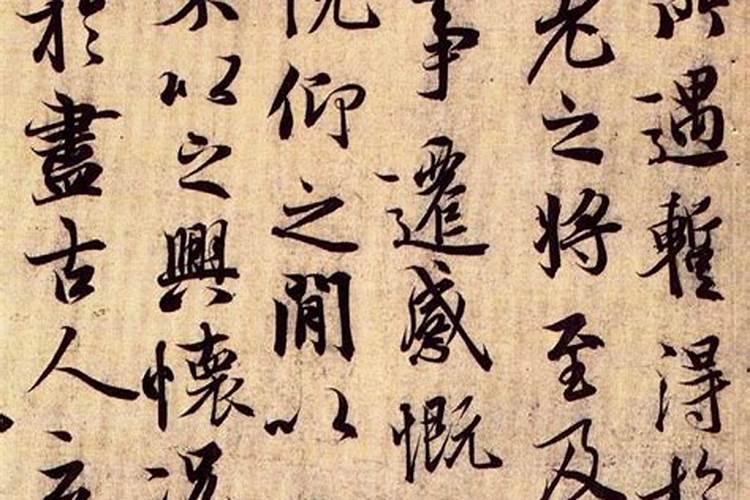 所遇暫得於
老之將至及
事遷感慨
俛仰之間以
不以之興懷況
於盡古人云